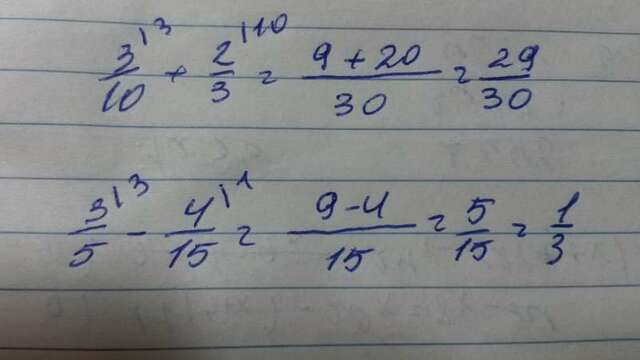 3/10 |3 + 2/3 |10 = (9 + 20)/30 = 29/30
3/5 |3 - 4/15 |1 = (9 - 4)/15 = 5/15 = 1/3